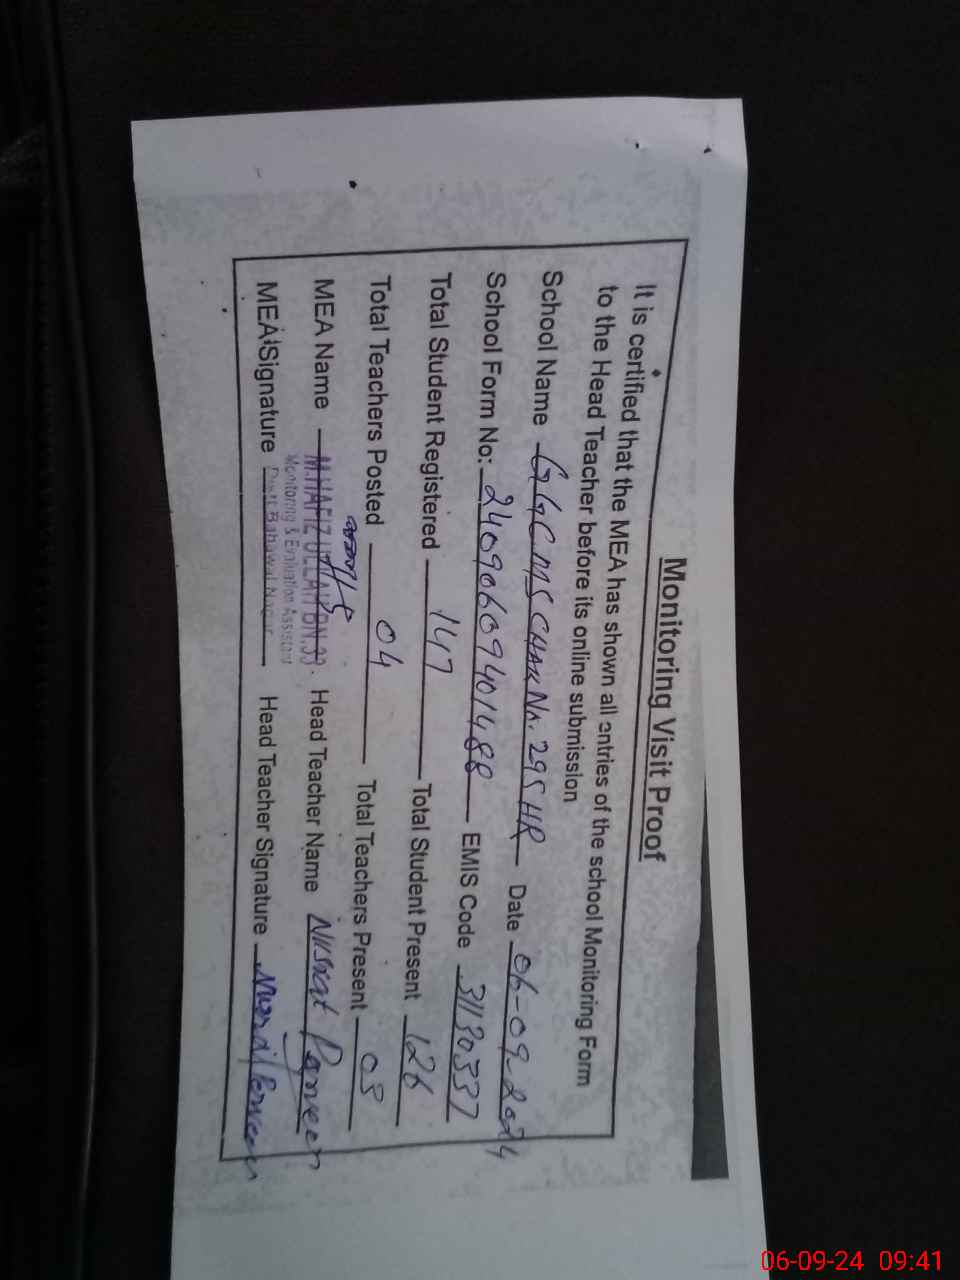 Monitoring Visit Proof
It is certified that the MEA has shown all entries of the school Monitoring Form
to the Head Teacher before its online submission
School Name GGCMS CHAK No. 295 HR Date 06-09-2024
School Form No: 2409060940 1488 EMIS Code 31130337
Total Student Registered 147 Total Student Present 126
Total Teachers Posted 04 Total Teachers Present 03
MEA Name M.HAFIZ ULLAH BN.33. Head Teacher Name Nusrat Parveen
Monitoring & Evaluation Assistant
MEA Signature Distt Bahawal Nagar Head Teacher Signature Nusrat Parveen
06-09-24 09:41